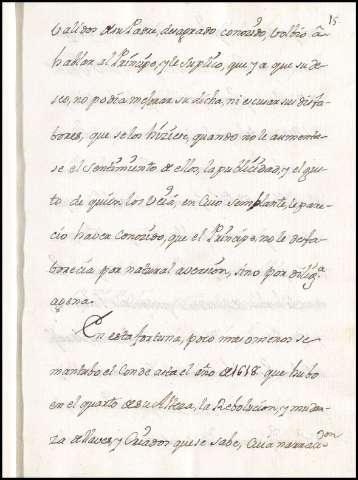 15
validos de su Padre, desagrado conozido, volbio a
hablar al Principe, y le suplico, que ya que su de-
seo, no podia mejorar su dicha, ni escusar sus disfa-
bores, que se los hiziese, quando no le aumenta-
se el sentimiento de ellos, la publicidad, y el gus-
to de quien los veía, en cuio semplante, le pare-
cio haver conozido, que el Principe, no le desfa-
borecia por natural aversion, sino por dilig.ª
agena.
En esta fortuna, poco mas o menos se
mantubo el Conde asta el año de 1618 que hubo
en el quarto de su Alteza, la Rebolucion, y mudan-
za de llaves, y Criados que se sabe, cuia narrazi.on